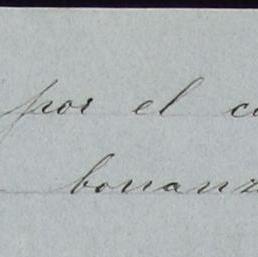 por el c
bonanz